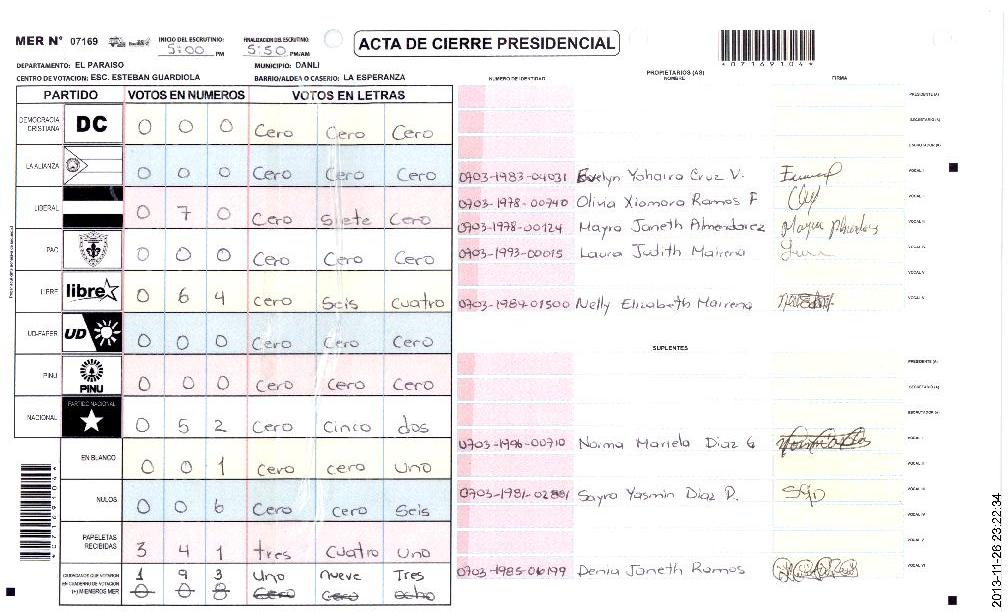 MER N° 07169 INICIO DEL ESCRUTINIO: 5:00 PM FINALIZACION DEL ESCRUTINIO: 5:50 PM/AM ACTA DE CIERRE PRESIDENCIAL
DEPARTAMENTO: EL PARAISO MUNICIPIO: DANLI
CENTRO DE VOTACION: ESC. ESTEBAN GUARDIOLA BARRIO/ALDEA O CASERIO: LA ESPERANZA
*07169104*
PARTIDO VOTOS EN NUMEROS VOTOS EN LETRAS
DEMOCRACIA CRISTIANA DC 0 0 0 Cero Cero Cero
LA ALIANZA 0 0 0 Cero Cero Cero
LIBERAL 0 7 0 Cero Siete Cero
PAC 0 0 0 Cero Cero Cero
LIBRE libre 0 6 4 cero Seis cuatro
UD-FAPER UD 0 0 0 Cero Cero Cero
PINU PINU 0 0 0 Cero Cero Cero
NACIONAL PARTIDO NACIONAL 0 5 2 Cero Cinco dos
EN BLANCO 0 0 1 Cero cero Uno
NULOS 0 0 6 Cero cero Seis
PAPELETAS RECIBIDAS 3 4 1 tres Cuatro Uno
CIUDADANOS QUE VOTARON EN CUADERNO DE VOTACION (+) MIEMBROS MER 1 9 3 Uno nueve Tres
0 0 8 Cero Cero ocho
*07169104*
PROPIETARIOS (AS)
NUMERO DE IDENTIDAD NOMBRE FIRMA
PRESIDENTE (A)
SECRETARIO (A)
ESCRUTADOR (A)
0703-1983-04031 Evelyn Yohaira Cruz V. VOCAL I
0703-1978-00740 Olivia Xiomora Ramos F VOCAL II
0703-1978-00124 Mayra Janeth Almendarez VOCAL III
0703-1993-00015 Laura Judith Mairena VOCAL IV
VOCAL V
0703-1984-01500 Nelly Elizabeth Mairena VOCAL VI
SUPLENTES
PRESIDENTE (A)
SECRETARIO (A)
ESCRUTADOR (A)
0703-1996-00710 Norma Mariela Diaz G VOCAL I
VOCAL II
0703-1981-02881 Sayra Yasmin Diaz P. VOCAL III
VOCAL IV
VOCAL V
0703-1985-06199 Denia Janeth Ramos VOCAL VI
2013-11-26 23:22:34